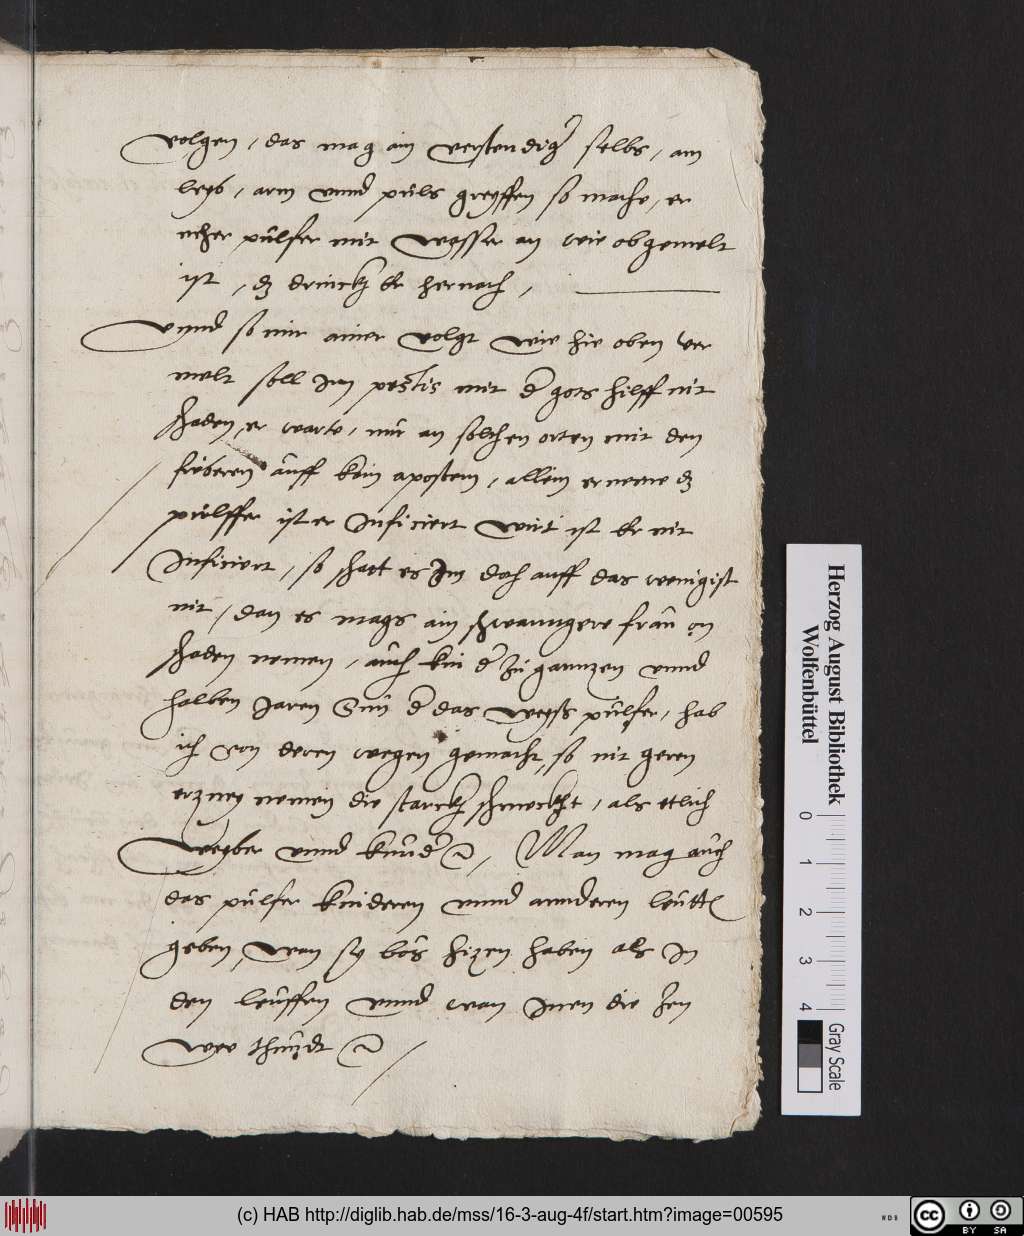 volgen, das mag ain verstendiger selbs, am
leyb, arm vnnd puls greyffen so mache, er
mher pulfer mit Wasser an wie obgemelt
ist, dz drinckh Er hernach,
Vnnd so mir ainer volgt wie hie oben ver
melt soll Im pestis mit der gots hilff nit
schaden, er warte, nur an solchen orten mit den
fieberen auff kein apostem, allein er neme dz
pulffer ist er Inficiert Wirt ist Er nit
Inficiert, so schatt es Im doch auff das wenigist
nit, dan es mags ain schwanngere frau on
schaden nemen, auch kin der zu gannzen vnnd
halben Jaren das Weyss pulfer, hab
ich von deren wegen gemacht, so nit geren
erzney nemen die starckh schmeckht, als etlich
Weyber vnnd kinder Man mag auch
das pulfer kinderen vnnd annderen leutten
geben, Wan sy bos hizen haben als In
den leuffen vnnd wan Inen die zen
Wee thundt
Herzog August Bibliothek
Wolfenbüttel
0 1 2 3 4
Gray Scale
(c) HAB http://diglib.hab.de/mss/16-3-aug-4f/start.htm?image=00595
WDB
cc BY SA